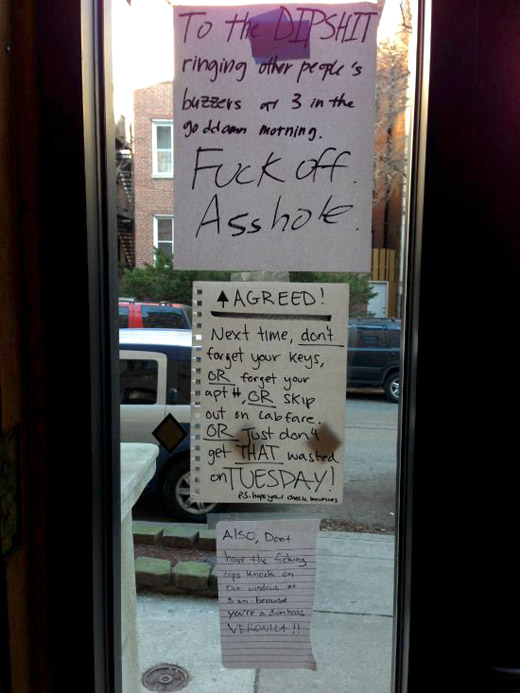 To the DIPSHIT
ringing other people's
buzzers at 3 in the
goddamn morning.
Fuck off.
Asshole.
↑ AGREED!
Next time, don't
forget your keys,
OR forget your
apt #, OR skip
out on cab fare.
OR Just don't
get THAT wasted
on TUESDAY!
P.S. hope your check bounces
Also, Don't
have the fucking
cops knock on
our windows at
3 am because
you're a dumbass
VERONICA!!